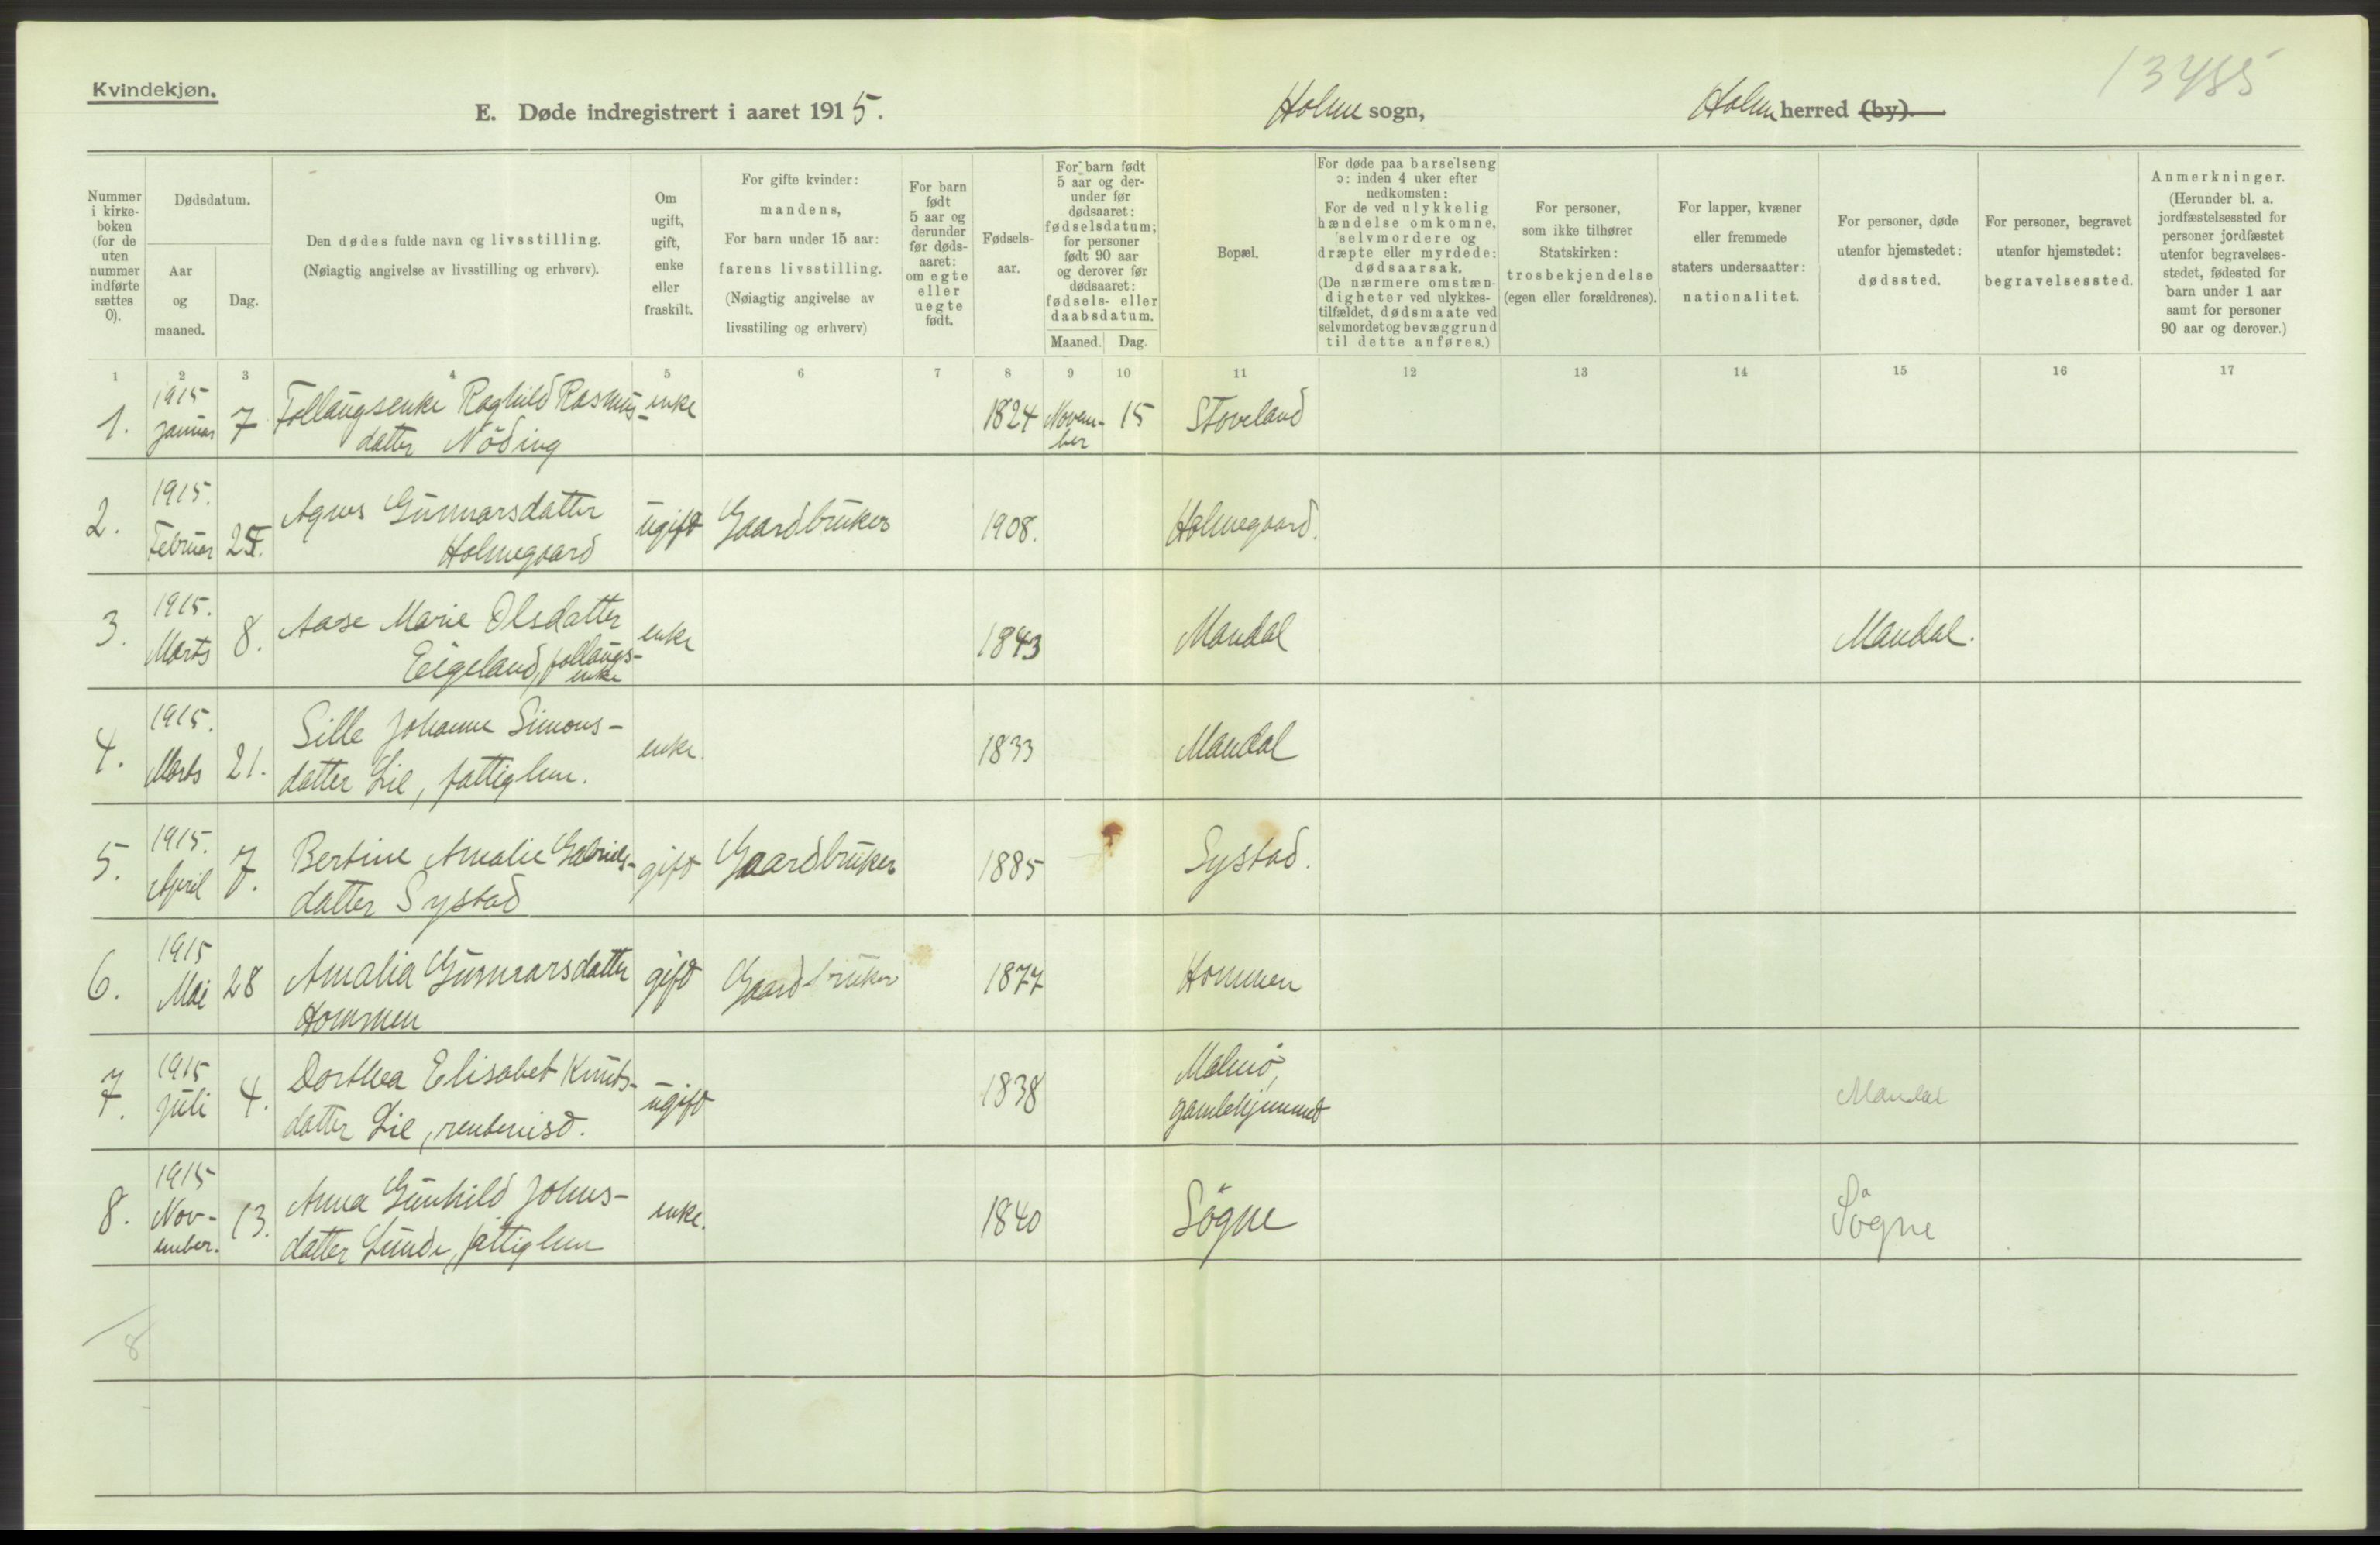 Kvindekjøn.
13485
E. Døde indregistrert i aaret 1915.
Holme sogn,
Holme herred (by).
Nummer i kirke-boken (for de uten nummer indførte sættes 0).
Dødsdatum.
Aar og maaned.
Dag.
Den dødes fulde navn og livsstilling.
(Nøiagtig angivelse av livsstilling og erhverv).
Om ugift, gift, enke eller fraskilt.
For gifte kvinder: mandens,
For barn under 15 aar: farens livsstilling.
(Nøiagtig angivelse av livsstiling og erhverv)
For barn født 5 aar og derunder før døds-aaret: om egte eller uegte født.
Fødsels-aar.
For barn født 5 aar og der-under før dødsaaret: fødselsdatum; for personer født 90 aar og derover før dødsaaret: fødsels- eller daabsdatum.
Maaned.
Dag.
Bopæl.
For døde paa barselseng ɔ: inden 4 uker efter nedkomsten:
For de ved ulykkelig hændelse omkomne, selvmordere og dræpte eller myrdede: dødsaarsak.
(De nærmere omstæn-digheter ved ulykkes-tilfældet, dødsmaate ved selvmordet og bevæggrund til dette anføres.)
For personer, som ikke tilhører Statskirken: trosbekjendelse (egen eller forældrenes).
For lapper, kvæner eller fremmede staters undersaatter: nationalitet.
For personer, døde utenfor hjemstedet: dødssted.
For personer, begravet utenfor hjemstedet: begravelsessted.
Anmerkninger.
(Herunder bl. a. jordfæstelsessted for personer jordfæstet utenfor begravelses-stedet, fødested for barn under 1 aar samt for personer 90 aar og derover.)
1 2 3 4 5 6 7 8 9 10 11 12 13 14 15 16 17
1. 1915 Januar 7 Follaugsenke Raghild Rasmus- enke 1824 Novem-ber 15 Stoveland
datter Nöding
2. 1915. Februar 25. Agnes Gunnarsdatter ugift Gaardbruker 1908. Holmegaard.
Holmegaard
3. 1915. Marts 8. Aase Marie Olsdatter enke 1843 Mandal Mandal.
Eigeland, follaugs-enke
4. 1915. Marts 21. Sille Johanne Simons- enke. 1833 Mandal
datter Lie, fattiglem.
5. 1915. April 7. Bertine Amalie Gabriels- gift Gaardbruker 1885 Systad.
datter Systad
6. 1915 Mai 28 Amalia Gunnarsdatter gift Gaardbruker 1877 Hommen
Hommen
7. 1915 Juli 4. Dorthea Elisabet Knuts- ugift 1838 Malmö, gamlehjemmet Mandal
datter Lie, rentenist.
8. 1915 Nov-ember. 13. Anna Gunhild Johns- enke. 1840 Sögne Sögne
datter Lunde, fattiglem
8